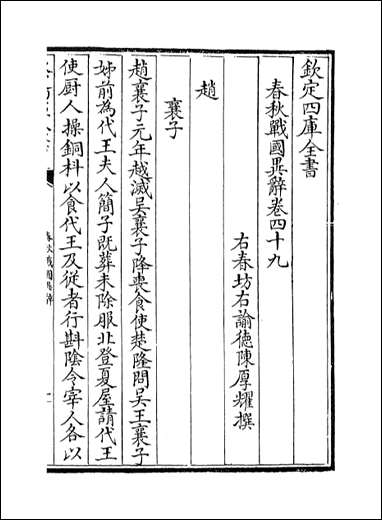 欽定四庫全書
春秋戰國異辭卷四十九
右春坊右諭德陳厚耀撰
趙
襄子
趙襄子元年越滅吳襄子降喪食使楚隆問吳王襄子
姊前為代王夫人簡子既葬未除服北登夏屋請代王
使厨人操銅枓以食代王及從者行斟隂令宰人各以
春秋戰國異辭